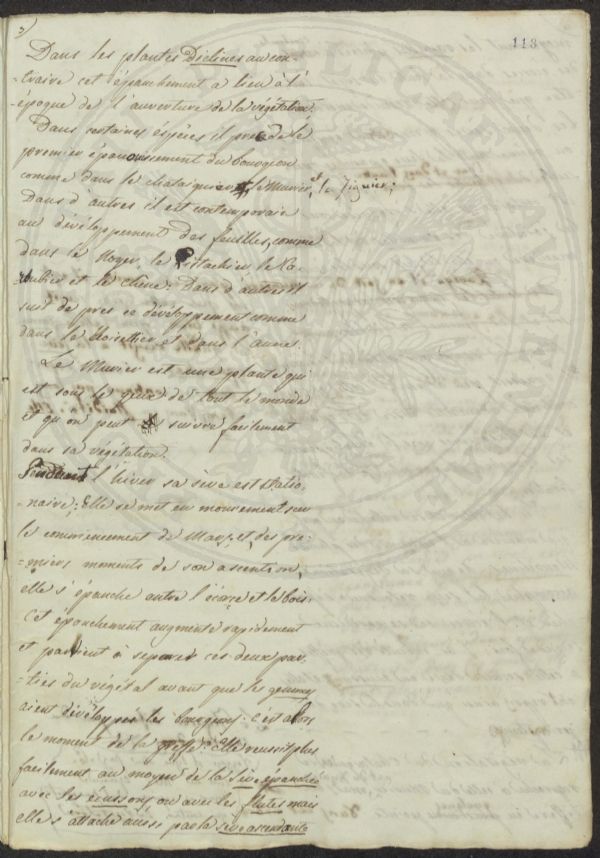 3)
113
Dans les plantes Diclines au con-
-traire cet épanchement a lieu à l'
-époque de l'auverture de la végétation.
Dans certaines éspéces il precede le
premier épanouissement du bourgeon
comme dans le chataigner, le Murier, et le Figuier;
Dans d'autres il est contemporain
au développement des feuilles, comme
dans le Noyer, le Pistachier, le Ca-
roubier et le chene; Dans d'autres il
suit de pres ce développement comme
dans le Noisettier et dans l'aune.
Le Murier est une plante qui
est sous les yeux de tout le monde
et qu'on peut suivre facilement
dans sa végétation.
Pendant l'hiver sa séve est statio-
-naire; Elle se met en mouvement sur
le commencement de Mars, et des pre-
-miers moments de son ascention,
elle s'épanche entre l'écorçe et le bois.
Cet épanchement augmente rapidement
et parvient à separer ces deux par-
-ties du végétal avant que les gemmes
aient dévéloppés les bourgeons: c'est alors
le moment de la greffe: Elle reussit plus
facilement au moyen de la séve épanchée
avec les écussons ou avec les flutes mais
elle s'attache aussi par la seve ascendante